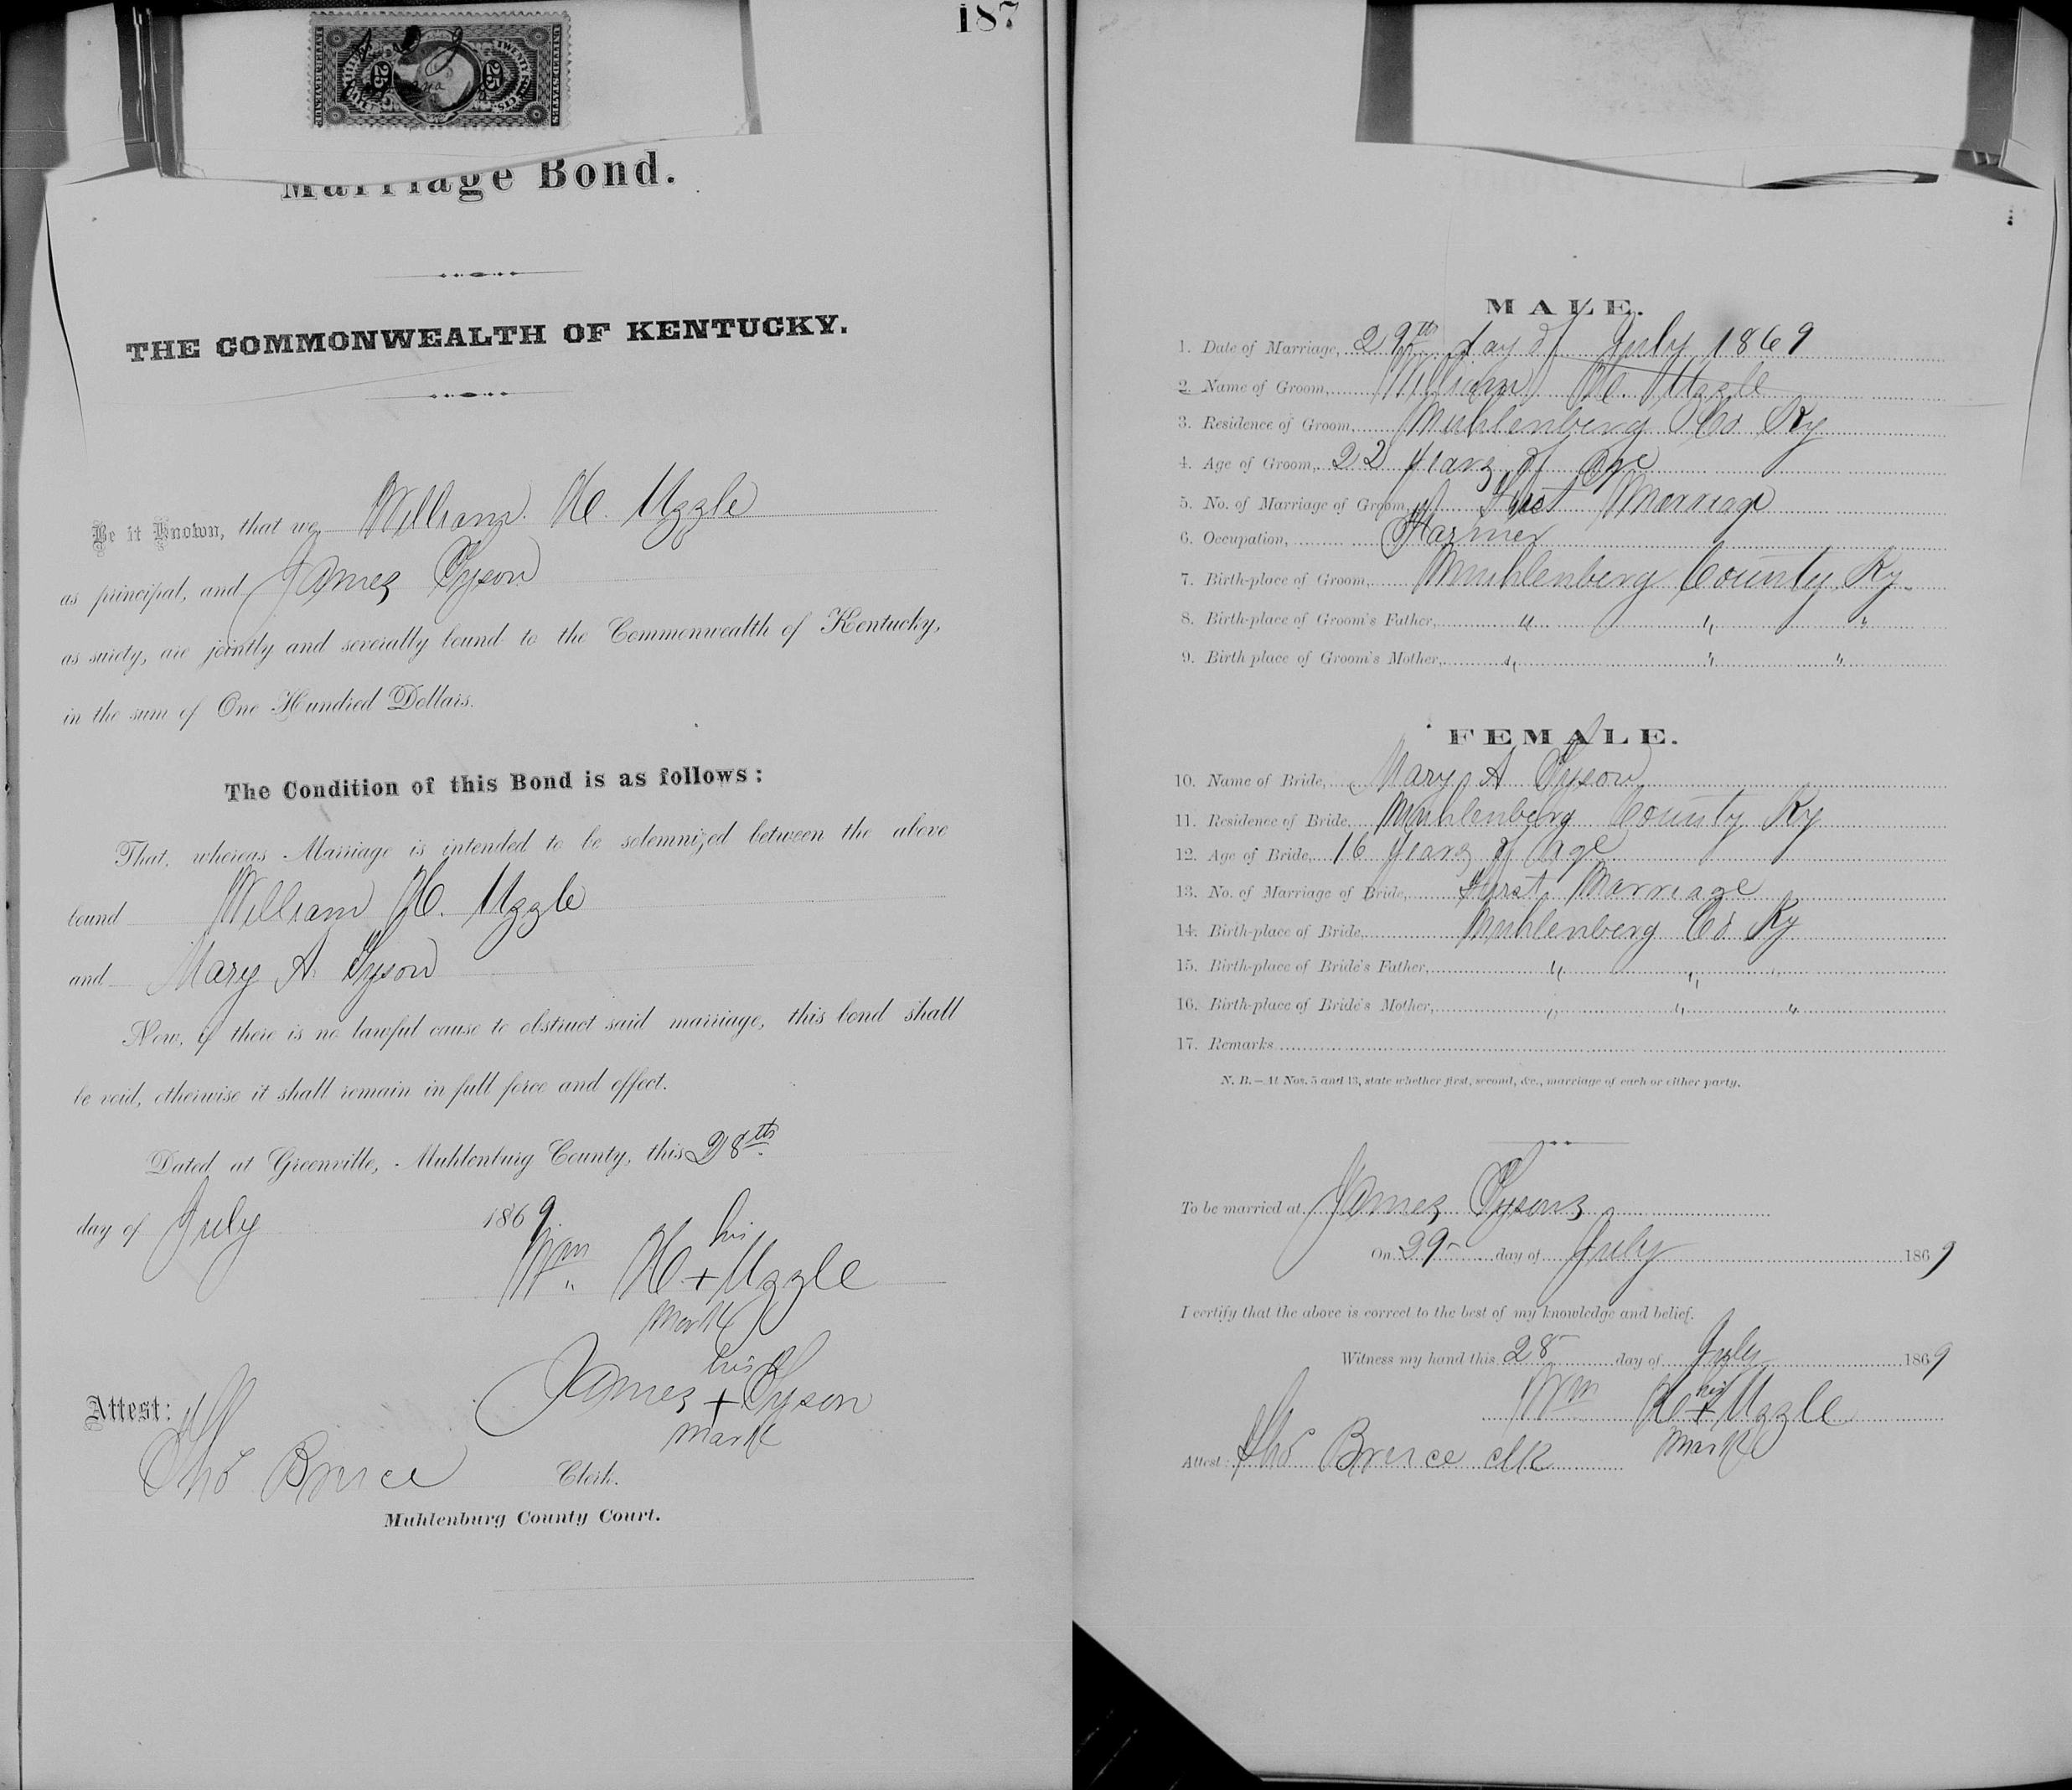 187
UNITED STATES
TWENTY FIVE CTS.
25 25
Marriage Bond.
THE COMMONWEALTH OF KENTUCKY.
Be it Known, that we, William H. Uzzle
as principal, and James Tyson
as surety, are jointly and severally bound to the Commonwealth of Kentucky,
in the sum of One Hundred Dollars.
The Condition of this Bond is as follows:
That, whereas Marriage is intended to be solemnized between the above
bound William H. Uzzle
and Mary A. Tyson
Now, if there is no lawful cause to obstruct said marriage, this bond shall
be void, otherwise it shall remain in full force and effect.
Dated at Greenville, Muhlenburg County, this 28th
day of July 1869.
his
Wm H. + Uzzle
mark
his
James + Tyson
mark
Attest:
Tho Bruce Clerk.
Muhlenburg County Court.
MALE.
1. Date of Marriage, 29th day of July 1869
2. Name of Groom, William H. Uzzle
3. Residence of Groom, Muhlenberg Co Ky
4. Age of Groom, 22 years of age
5. No. of Marriage of Groom, First Marriage
6. Occupation, Farmer
7. Birth-place of Groom, Muhlenberg County Ky.
8. Birth-place of Groom's Father, " " "
9. Birth place of Groom's Mother, " " "
FEMALE.
10. Name of Bride, Mary A Tyson
11. Residence of Bride, Muhlenberg County Ky
12. Age of Bride, 16 years of age
13. No. of Marriage of Bride, First Marriage
14. Birth-place of Bride, Muhlenberg Co Ky
15. Birth-place of Bride's Father, " " "
16. Birth-place of Bride's Mother, " " "
17. Remarks
N. B.—At Nos. 5 and 13, state whether first, second, &c., marriage of each or either party.
To be married at James Tysons
On 29- day of July 1869
I certify that the above is correct to the best of my knowledge and belief.
Witness my hand this 28- day of July 1869
his
Wm H + Uzzle
mark
Attest: Tho Bruce clk